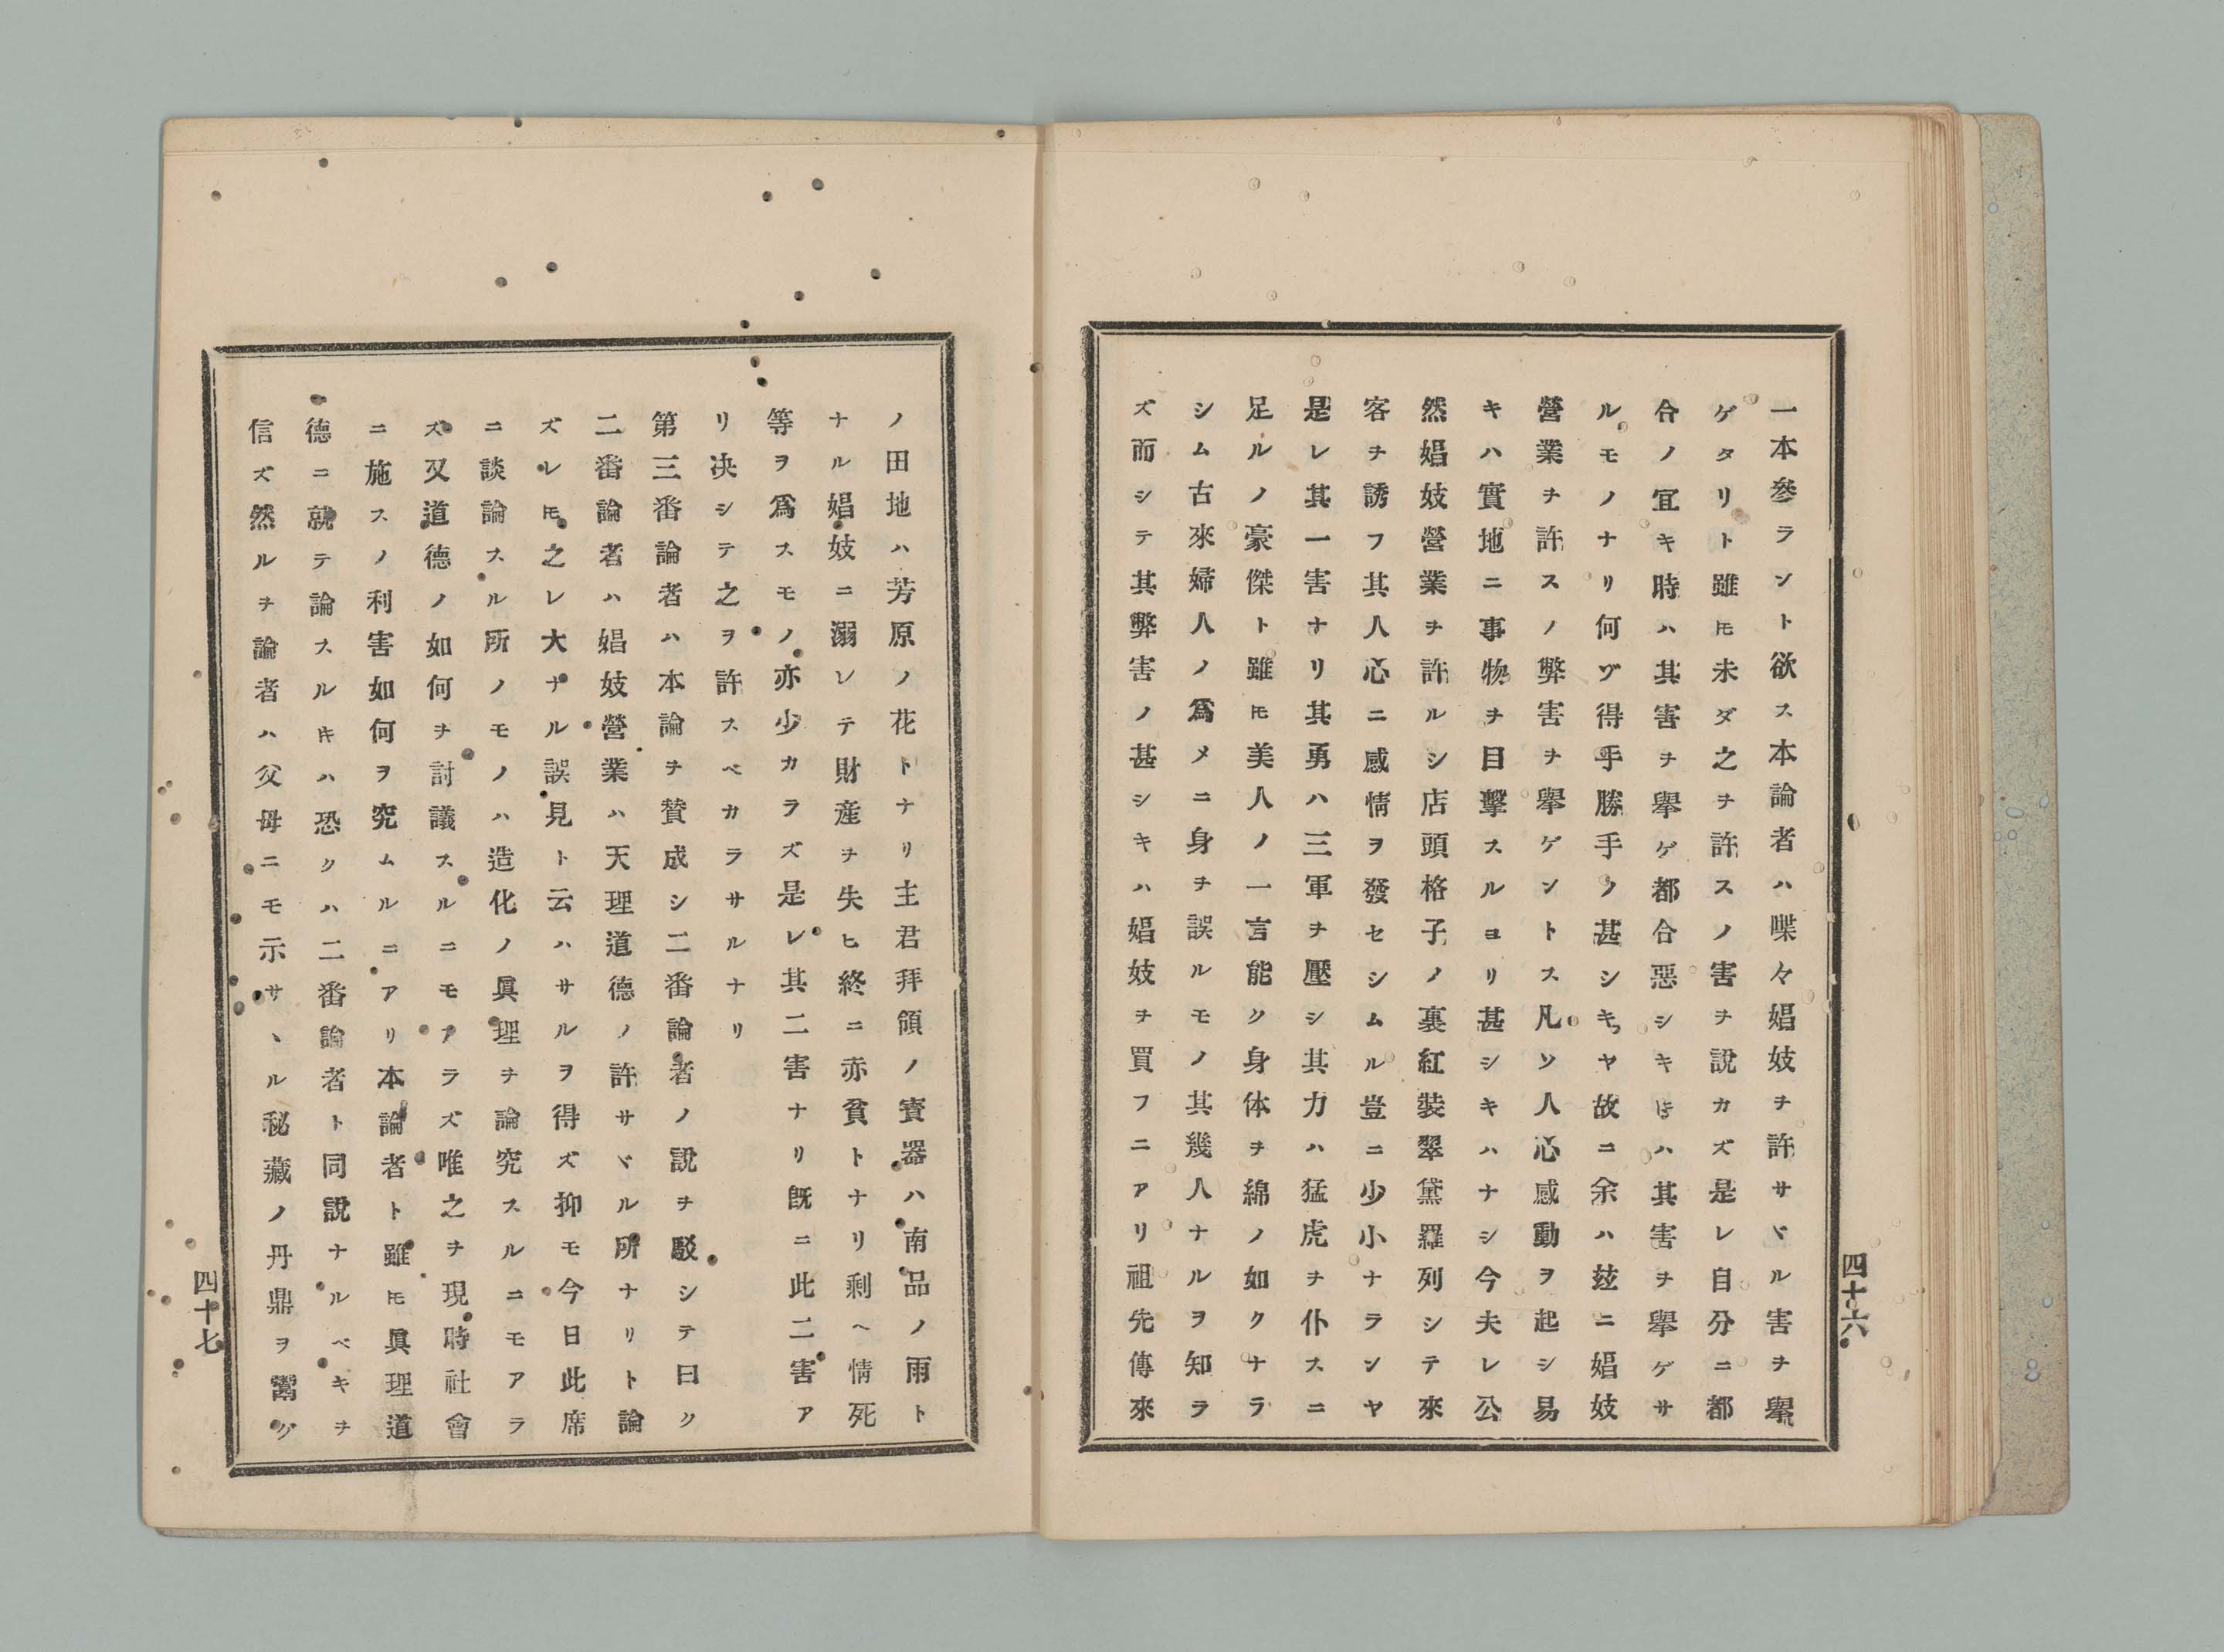 一本參ラント欲ス本論者ハ喋々娼妓ヲ許サヾル害ヲ擧
ゲタリト雖𪜈未ダ之ヲ許スノ害ヲ說カズ是レ自分ニ都
合ノ宜キ時ハ其害ヲ擧ゲ都合惡シキ𪜈ハ其害ヲ擧ゲサ
ルモノナリ何ゾ得手勝手ノ甚シキヤ故ニ余ハ玆ニ娼妓
營業ヲ許スノ弊害ヲ擧ゲントス凡ソ人心感動ヲ起シ易
キハ實地ニ事物ヲ目擊スルヨリ甚シキハナシ今夫レ公
然娼妓營業ヲ許ルシ店頭格子ノ裏紅裝翠黛羅列シテ來
客ヲ誘フ其人心ニ感情ヲ發セシムル豈ニ少小ナランヤ
是レ其一害ナリ其勇ハ三軍ヲ壓シ其力ハ猛虎ヲ仆スニ
足ルノ豪傑ト雖𪜈美人ノ一言能ク身体ヲ綿ノ如クナラ
シム古來婦人ノ爲メニ身ヲ誤ルモノ其幾人ナルヲ知ラ
ズ而シテ其弊害ノ甚シキハ娼妓ヲ買フニアリ祖先傳來
四十六
ノ田地ハ芳原ノ花トナリ主君拜領ノ寳器ハ南品ノ雨ト
ナル娼妓ニ溺レテ財產ヲ失ヒ終ニ赤貧トナリ剩ヘ情死
等ヲ爲スモノ亦少カラズ是レ其二害ナリ旣ニ此二害ア
リ决シテ之ヲ許スベカラサルナリ
第三番論者ハ本論ヲ賛成シ二番論者ノ說ヲ駁シテ曰ク
二番論者ハ娼妓營業ハ天理道德ノ許サヾル所ナリト論
ズレ𪜈之レ大ナル誤見ト云ハサルヲ得ズ抑モ今日此席
ニ談論スル所ノモノハ造化ノ眞理ヲ論究スルニモアラ
ズ又道德ノ如何ヲ討議スルニモアラズ唯之ヲ現時社會
ニ施スノ利害如何ヲ究ムルニアリ本論者ト雖𪜈眞理道
德ニ就テ論スルキハ恐クハ二番論者ト同說ナルベキヲ
信ズ然ルヲ論者ハ父母ニモ示サヽル秘藏ノ丹鼎ヲ鬻グ
四十七